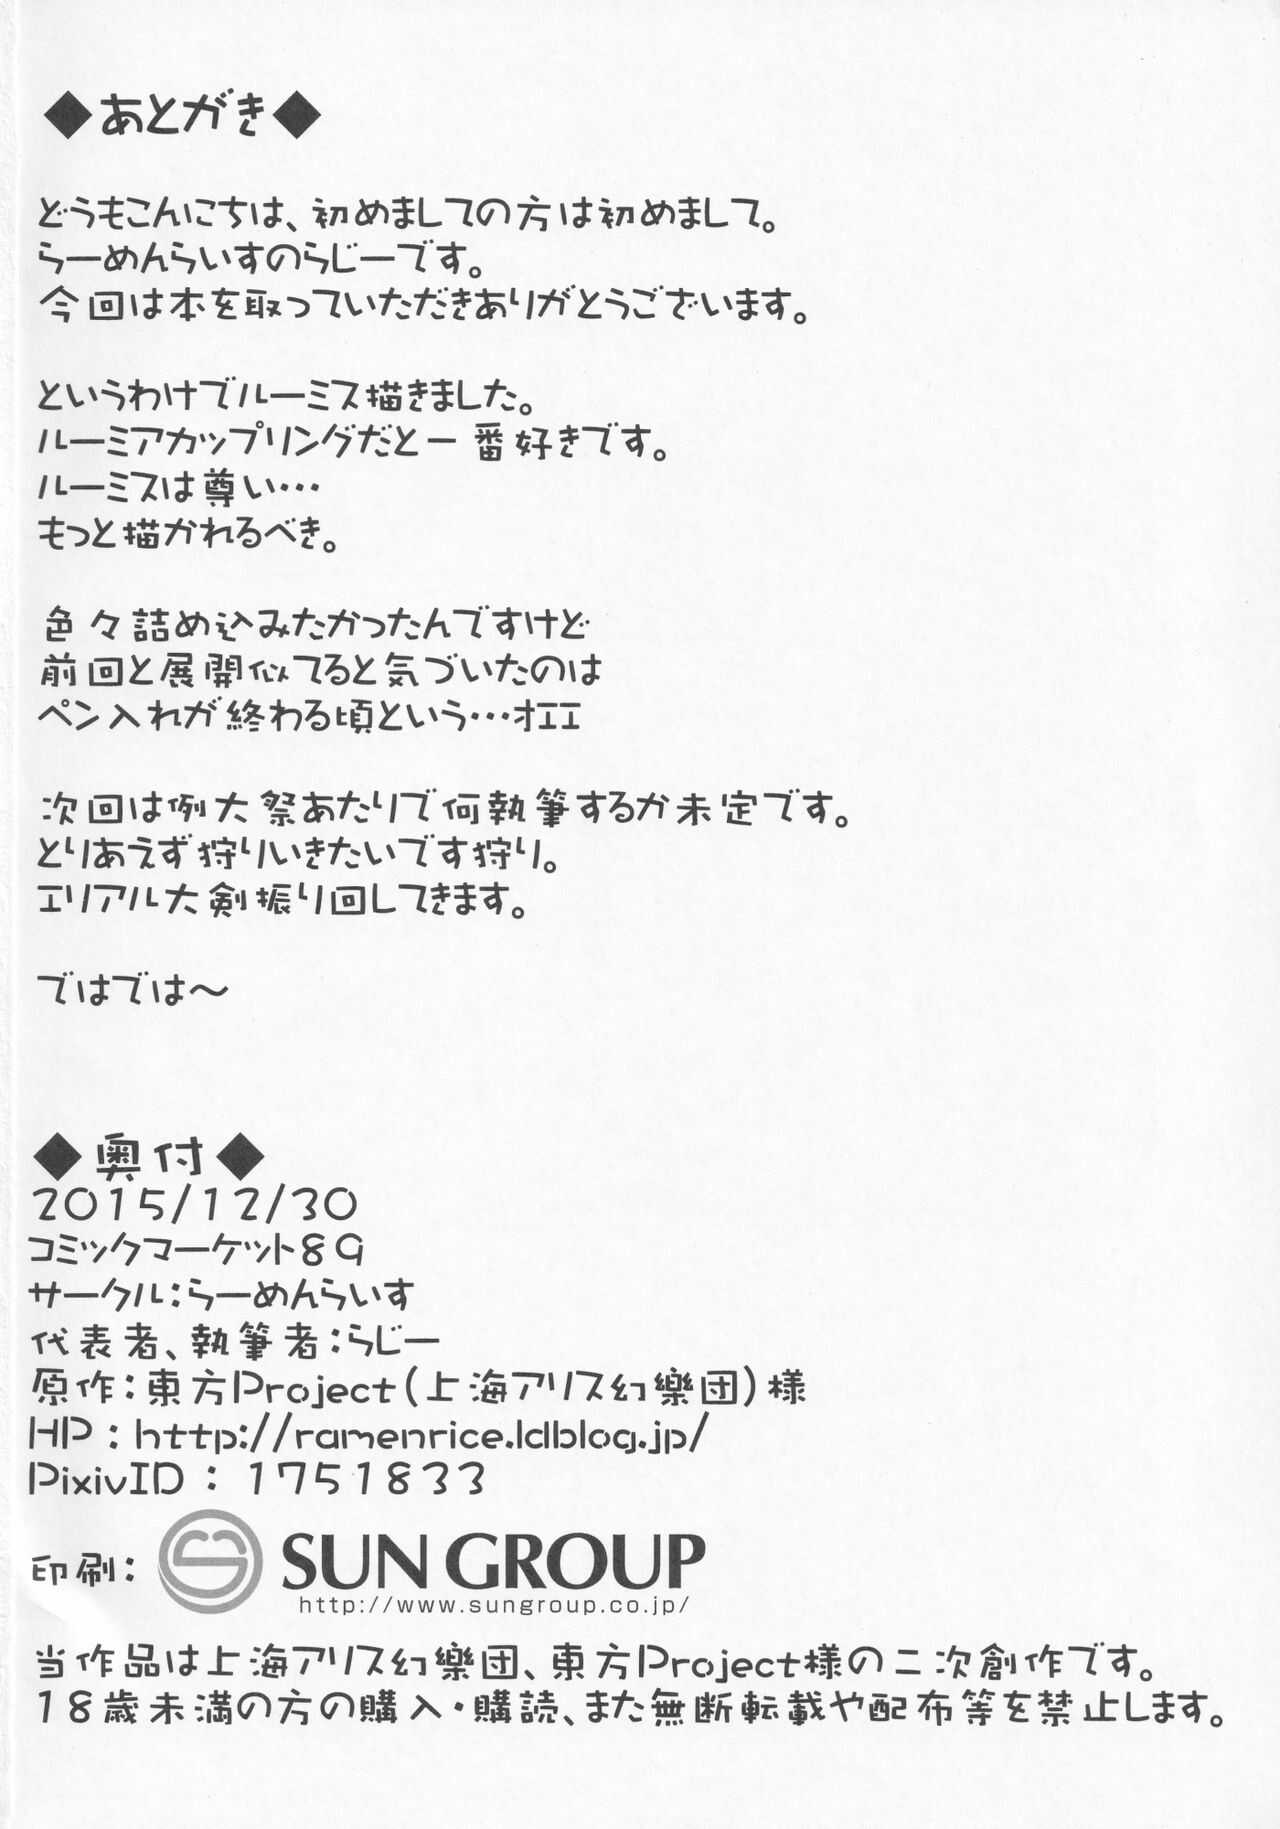 ◆あとがき◆
どうもこんにちは、初めましての方は初めまして。
らーめんらいすのらじーです。
今回は本を取っていただきありがとうございます。
というわけでルーミス描きました。
ルーミアカップリングだと一番好きです。
ルーミスは尊い…
もっと描かれるべき。
色々詰め込みたかったんですけど
前回と展開似てると気づいたのは
ペン入れが終わる頃という…オエエ
次回は例大祭あたりで何執筆するか未定です。
とりあえず狩りいきたいです狩り。
エリアル大剣振り回してきます。
ではでは～
◆奥付◆
2015/12/30
コミックマーケット89
サークル：らーめんらいす
代表者、執筆者：らじー
原作：東方Project(上海アリス幻樂団)様
HP：http://ramenrice.ldblog.jp/
PixivID：1751833
印刷：SUN GROUP
http://www.sungroup.co.jp/
当作品は上海アリス幻樂団、東方Project様の二次創作です。
18歳未満の方の購入・購読、また無断転載や配布等を禁止します。